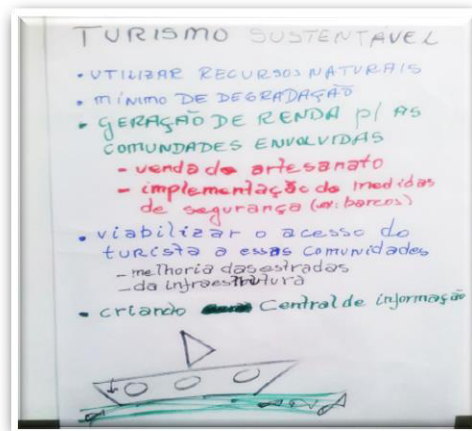 TURISMO SUSTENTÁVEL
• UTILIZAR RECURSOS NATURAIS
• MÍNIMO DE DEGRADAÇÃO
• GERAÇÃO DE RENDA p/ AS
COMUNDADES ENVOLVIDAS
- venda do artesanato
- implementação de medidas
de segurança (ex: barcos)
• viabilizar o acesso do
turista a essas comunidades
- melhoria das estradas
- da infraestrutura
• criando Central de informação